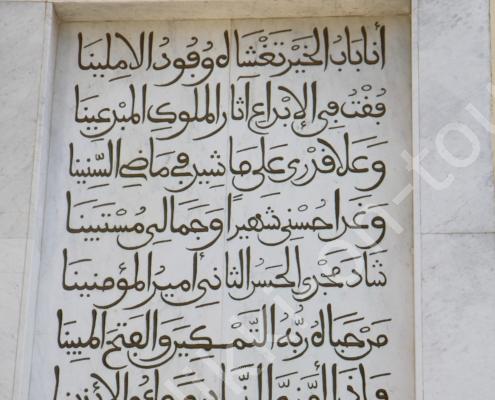 أنا باب الخير تغشاه وفود الاملينا
فقت في الإبداع آثار الملوك المبدعينا
وعلا قدري على ما شيد في ماضي السنينا
وغدا حسني شهيرا وجمالي مستبينا
شاد مجدي الحسن الثاني أمير المؤمنينا
من حباه ربه التمكين والفتح المبينا